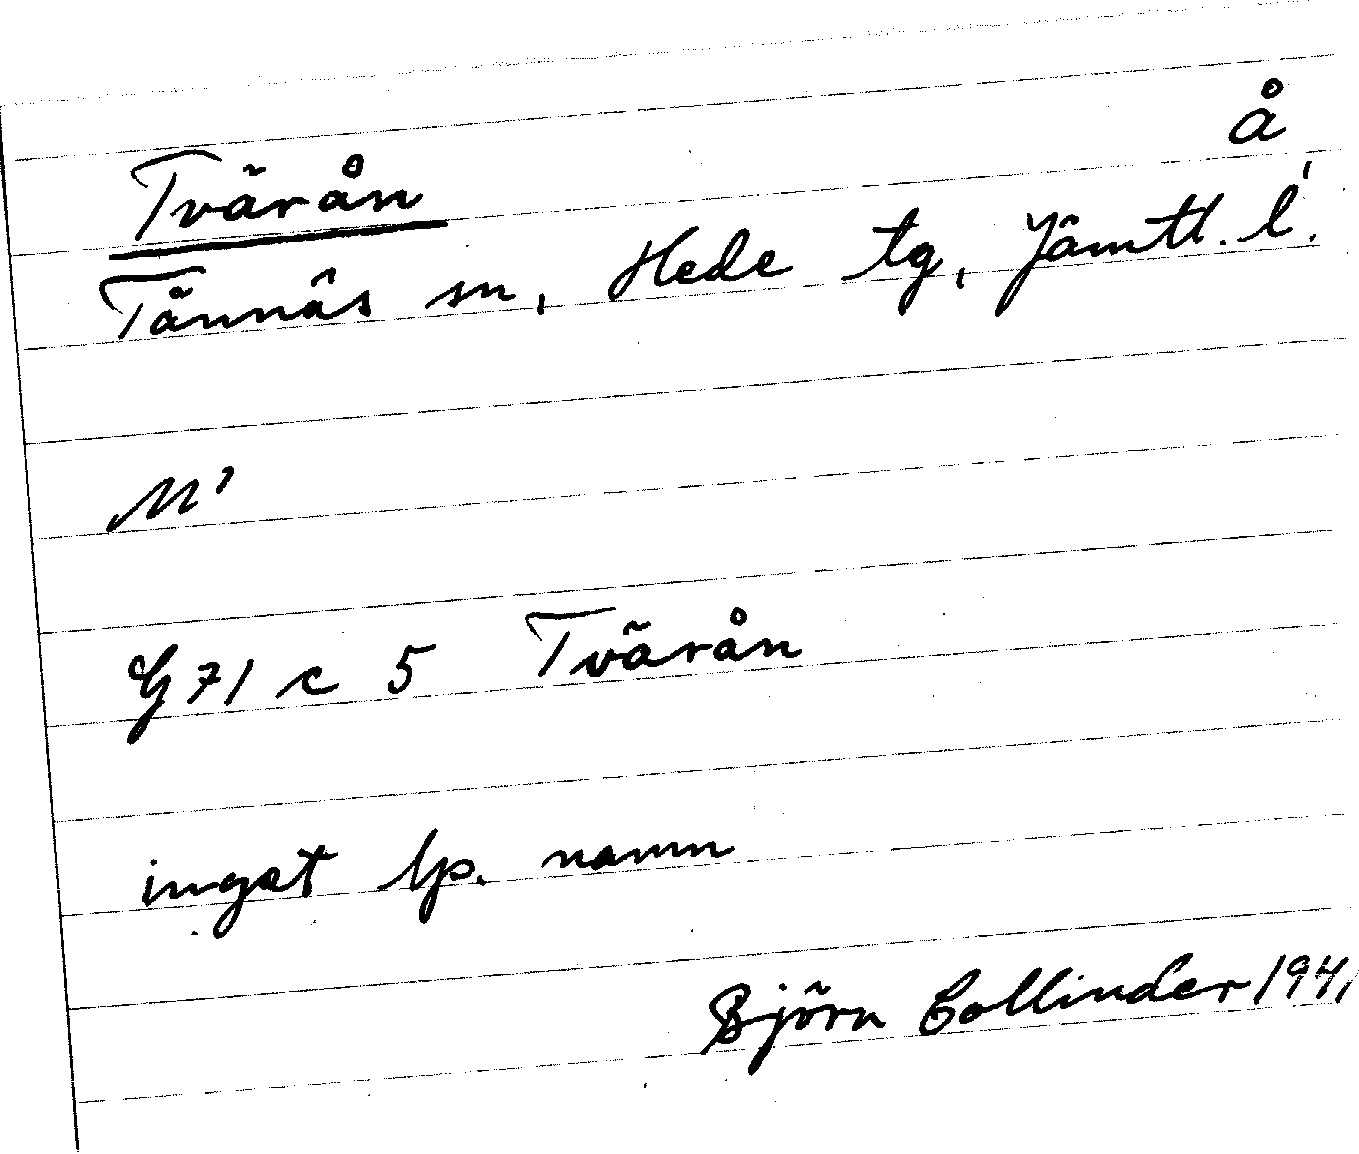 å
Tvärån
Tännäs sn, Hede tg, Jämtl. l.
G 71 c 5 Tvärån
inget lp. namn
Björn Collinder 1941